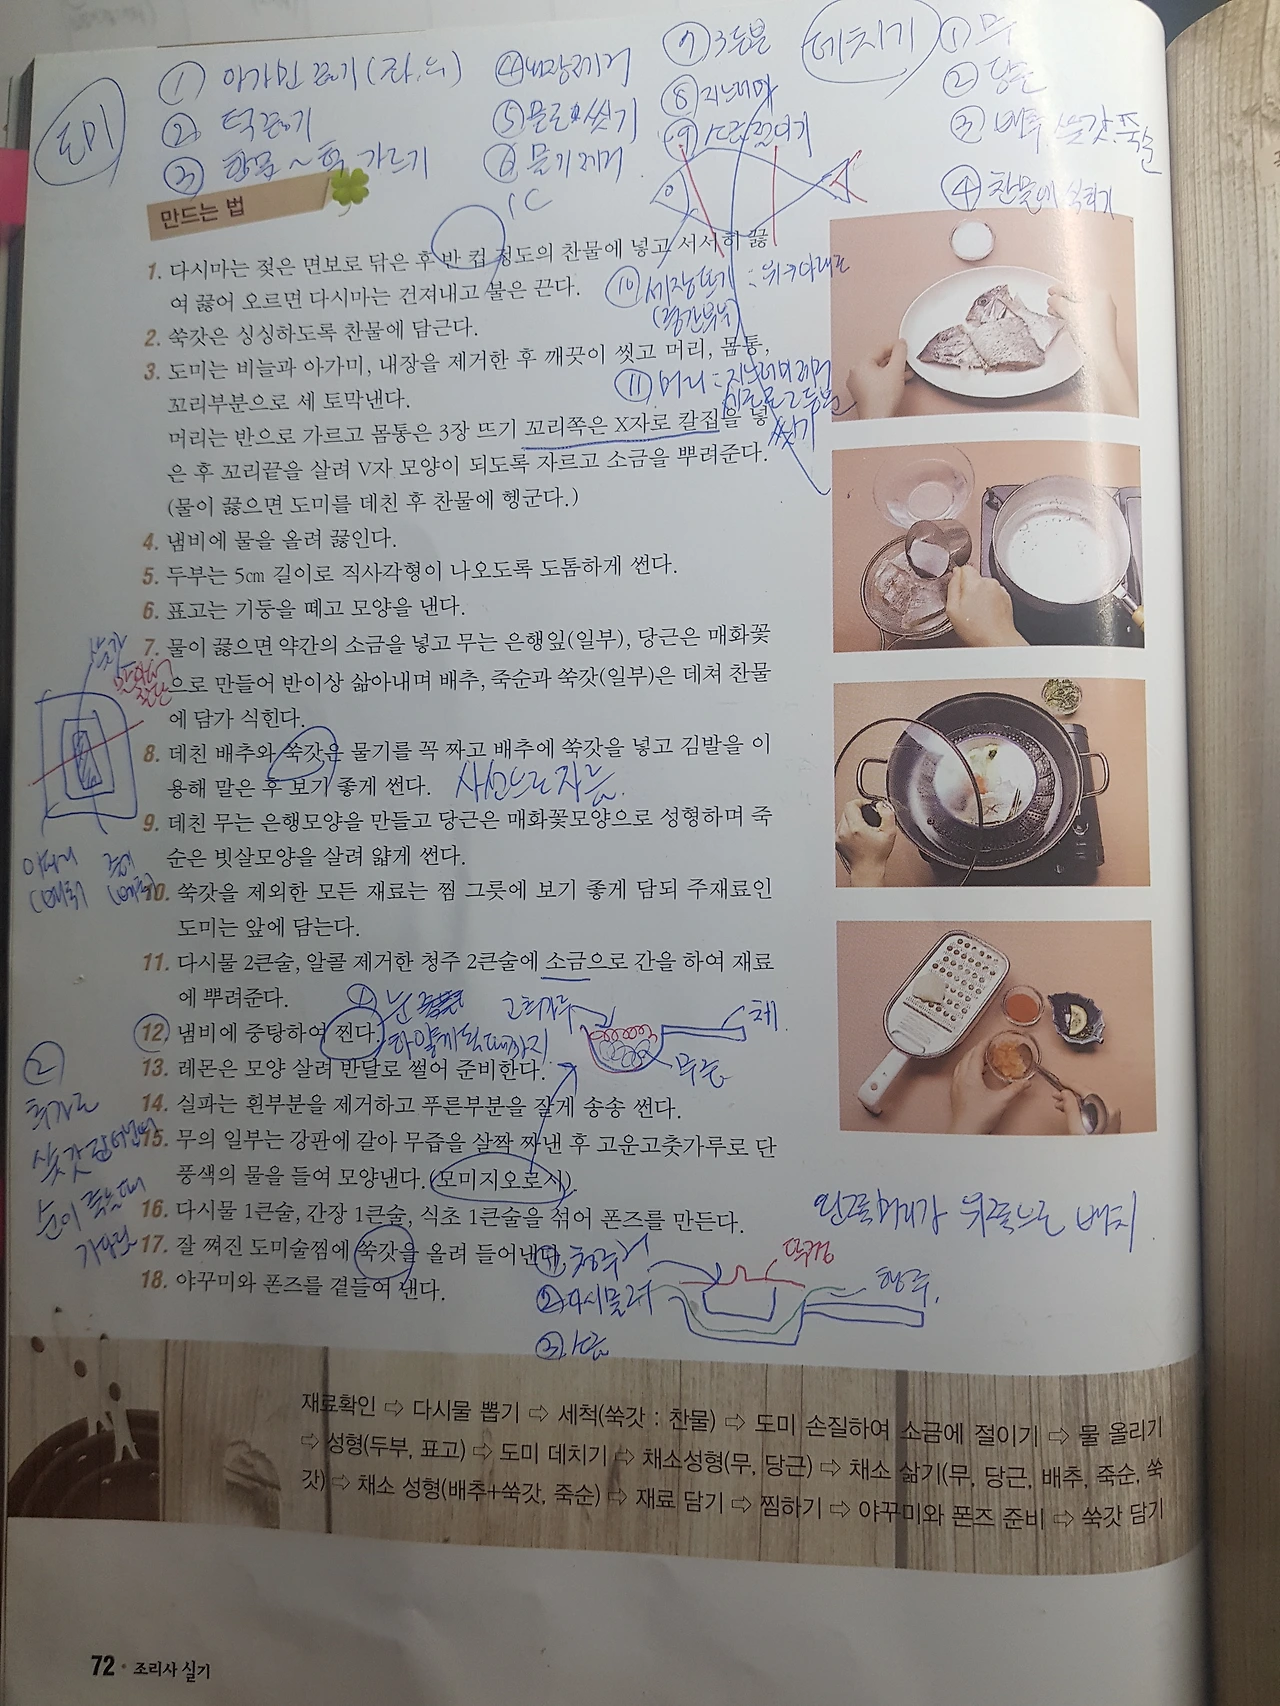 도미
① 아가미 끊기(좌, 우)
② 턱 끊기
③ 항문 ~ 턱 가르기
④ 내장제거
⑤ 물로 씻기
⑥ 물기제거
⑦ 3등분
⑧ 지느러미
데치기
① 무
② 당근
③ 배추, 쑥갓, 죽순
④ 찬물에 식히기
만드는 법
1C
1. 다시마는 젖은 면보로 닦은 후 반 컵 정도의 찬물에 넣고 서서히 끓
여 끓어 오르면 다시마는 건져내고 불은 끈다.
⑩ 세장뜨기 :
(중간부분)
2. 쑥갓은 싱싱하도록 찬물에 담근다.
3. 도미는 비늘과 아가미, 내장을 제거한 후 깨끗이 씻고 머리, 몸통,
꼬리부분으로 세 토막낸다.
⑪ 머리 : 지느러미 제거
머리는 반으로 가르고 몸통은 3장 뜨기 꼬리쪽은 X자로 칼집을 넣
은 후 꼬리끝을 살려 V자 모양이 되도록 자르고 소금을 뿌려준다.
(물이 끓으면 도미를 데친 후 찬물에 헹군다.)
4. 냄비에 물을 올려 끓인다.
5. 두부는 5㎝ 길이로 직사각형이 나오도록 도톰하게 썬다.
6. 표고는 기둥을 떼고 모양을 낸다.
7. 물이 끓으면 약간의 소금을 넣고 무는 은행잎(일부), 당근은 매화꽃
으로 만들어 반이상 삶아내며 배추, 죽순과 쑥갓(일부)은 데쳐 찬물
에 담가 식힌다.
쑥갓
8. 데친 배추와 쑥갓은 물기를 꼭 짜고 배추에 쑥갓을 넣고 김발을 이
용해 말은 후 보기 좋게 썬다. 사선으로 자름.
9. 데친 무는 은행모양을 만들고 당근은 매화꽃모양으로 성형하며 죽
순은 빗살모양을 살려 얇게 썬다.
(배추) (배추)
10. 쑥갓을 제외한 모든 재료는 찜 그릇에 보기 좋게 담되 주재료인
도미는 앞에 담는다.
11. 다시물 2큰술, 알콜 제거한 청주 2큰술에 소금으로 간을 하여 재료
에 뿌려준다.
12. 냄비에 중탕하여 찐다.
① 눈
하얗게 될때까지
고춧가루
체
무즙
13. 레몬은 모양 살려 반달로 썰어 준비한다.
14. 실파는 흰부분을 제거하고 푸른부분을 잘게 송송 썬다.
15. 무의 일부는 강판에 갈아 무즙을 살짝 짜낸 후 고운고춧가루로 단
풍색의 물을 들여 모양낸다. (모미지오로시)
②
추가로
쑥갓
숨이 죽을때
16. 다시물 1큰술, 간장 1큰술, 식초 1큰술을 섞어 폰즈를 만든다.
17. 잘 쪄진 도미술찜에 쑥갓을 올려 들어낸다.
18. 야꾸미와 폰즈를 곁들여 낸다.
왼쪽머리가 위쪽으로 배치.
① 청주
② 다시물
③ 소금
뚜껑
행주.
재료확인 ⇨ 다시물 뽑기 ⇨ 세척(쑥갓 : 찬물) ⇨ 도미 손질하여 소금에 절이기 ⇨ 물 올리기
⇨ 성형(두부, 표고) ⇨ 도미 데치기 ⇨ 채소성형(무, 당근) ⇨ 채소 삶기(무, 당근, 배추, 죽순, 쑥
갓) ⇨ 채소 성형(배추+쑥갓, 죽순) ⇨ 재료 담기 ⇨ 찜하기 ⇨ 야꾸미와 폰즈 준비 ⇨ 쑥갓 담기
72 · 조리사 실기